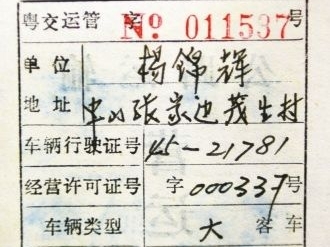 粤交运管 字 № 011537 号
单位 杨锦辉
地址 中山张家边茂生村
车辆行驶证号 45-21781
经营许可证号 字 000337号
车辆类型 大 客车